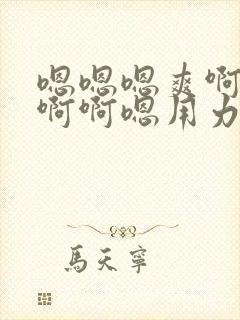 嗯嗯嗯爽啊
啊啊嗯用力
馬天寧